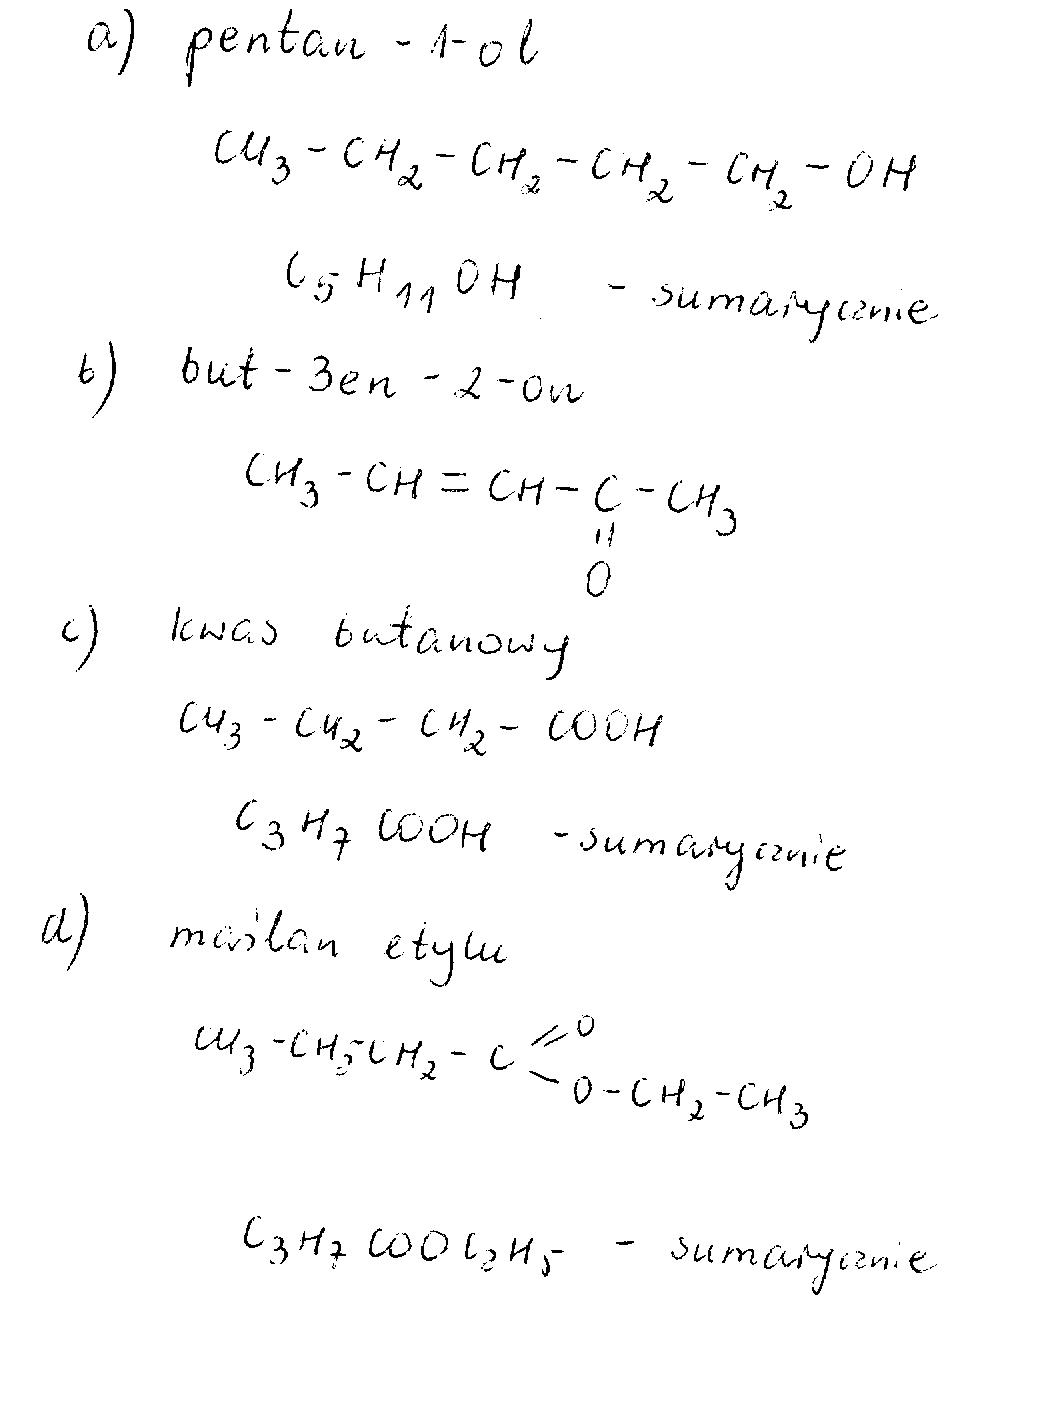 a) pentan - 1-ol
CH3 - CH2 - CH2 - CH2 - CH2 - OH
C5H11OH - sumarycznie
b) but - 3en - 2 - on
CH3 - CH = CH - C - CH3
=
O
c) kwas butanowy
CH3 - CH2 - CH2 - COOH
C3H7COOH - sumarycznie
d) maślan etylu
CH3 - CH2-CH2 - C = O
O - CH2 - CH3
C3H7COOC2H5 - sumarycznie